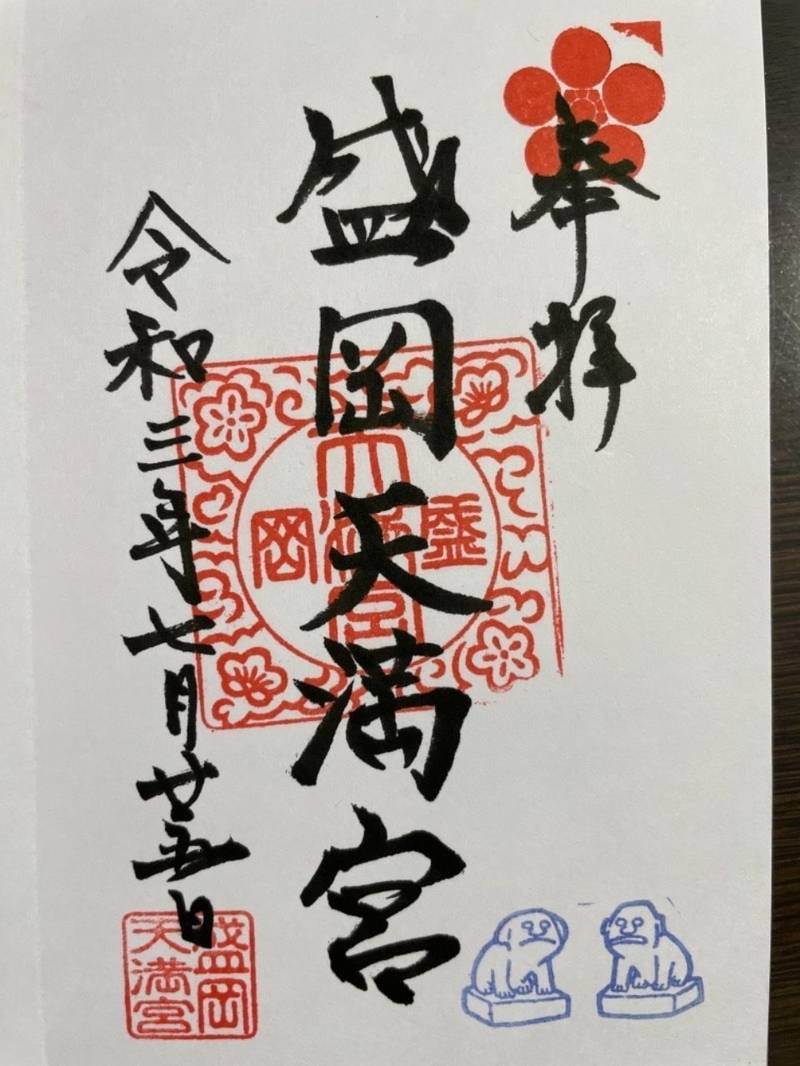 奉拝
盛岡天満宮
盛岡
天満宮
令和三年七月廿五日
盛岡
天満宮